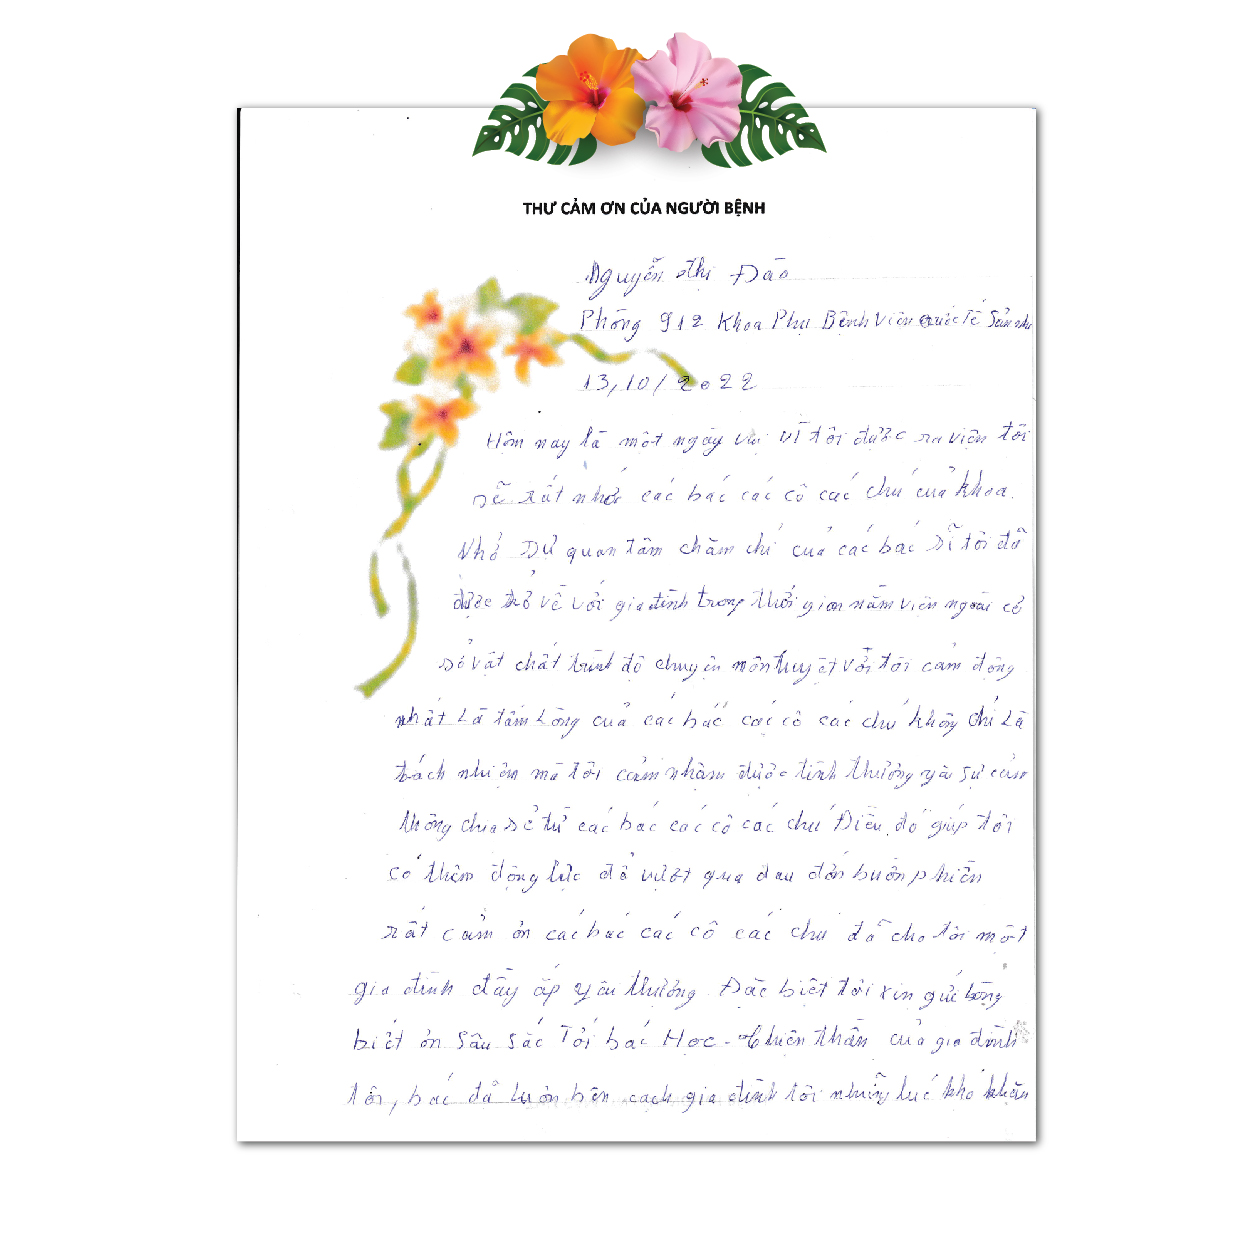 THƯ CẢM ƠN CỦA NGƯỜI BỆNH
Nguyễn Thị Đào
Phòng 912 Khoa Phụ Bệnh Viện Quốc Tế Sản nhi
13/10/2022
Hôm nay là một ngày vui vì tôi được ra viện tôi
sẽ rất nhớ các bác các cô các chú của khoa.
Nhờ sự quan tâm chăm chỉ của các bác sĩ tôi đã
được trở về với gia đình trong thời gian nằm viện ngoài cơ
sở vật chất trình độ chuyên môn tuyệt vời tôi cảm động
nhất là tấm lòng của các bác các cô các chú không chỉ là
trách nhiệm mà tôi cảm nhậm được tình thương yêu sự cảm
thông chia sẻ từ các bác các cô các chú Điều đó giúp tôi
có thêm động lực để vượt qua đau đớn buồn phiền
rất cảm ơn các bác các cô các chú đã cho tôi một
gia đình đầy ắp yêu thương Đặc biệt tôi xin gửi lòng
biết ơn sâu sắc Tới bác Học - Thiên thần của gia đình
tôi, bác đã luôn bên cạch gia đình tôi những lúc khó khăn